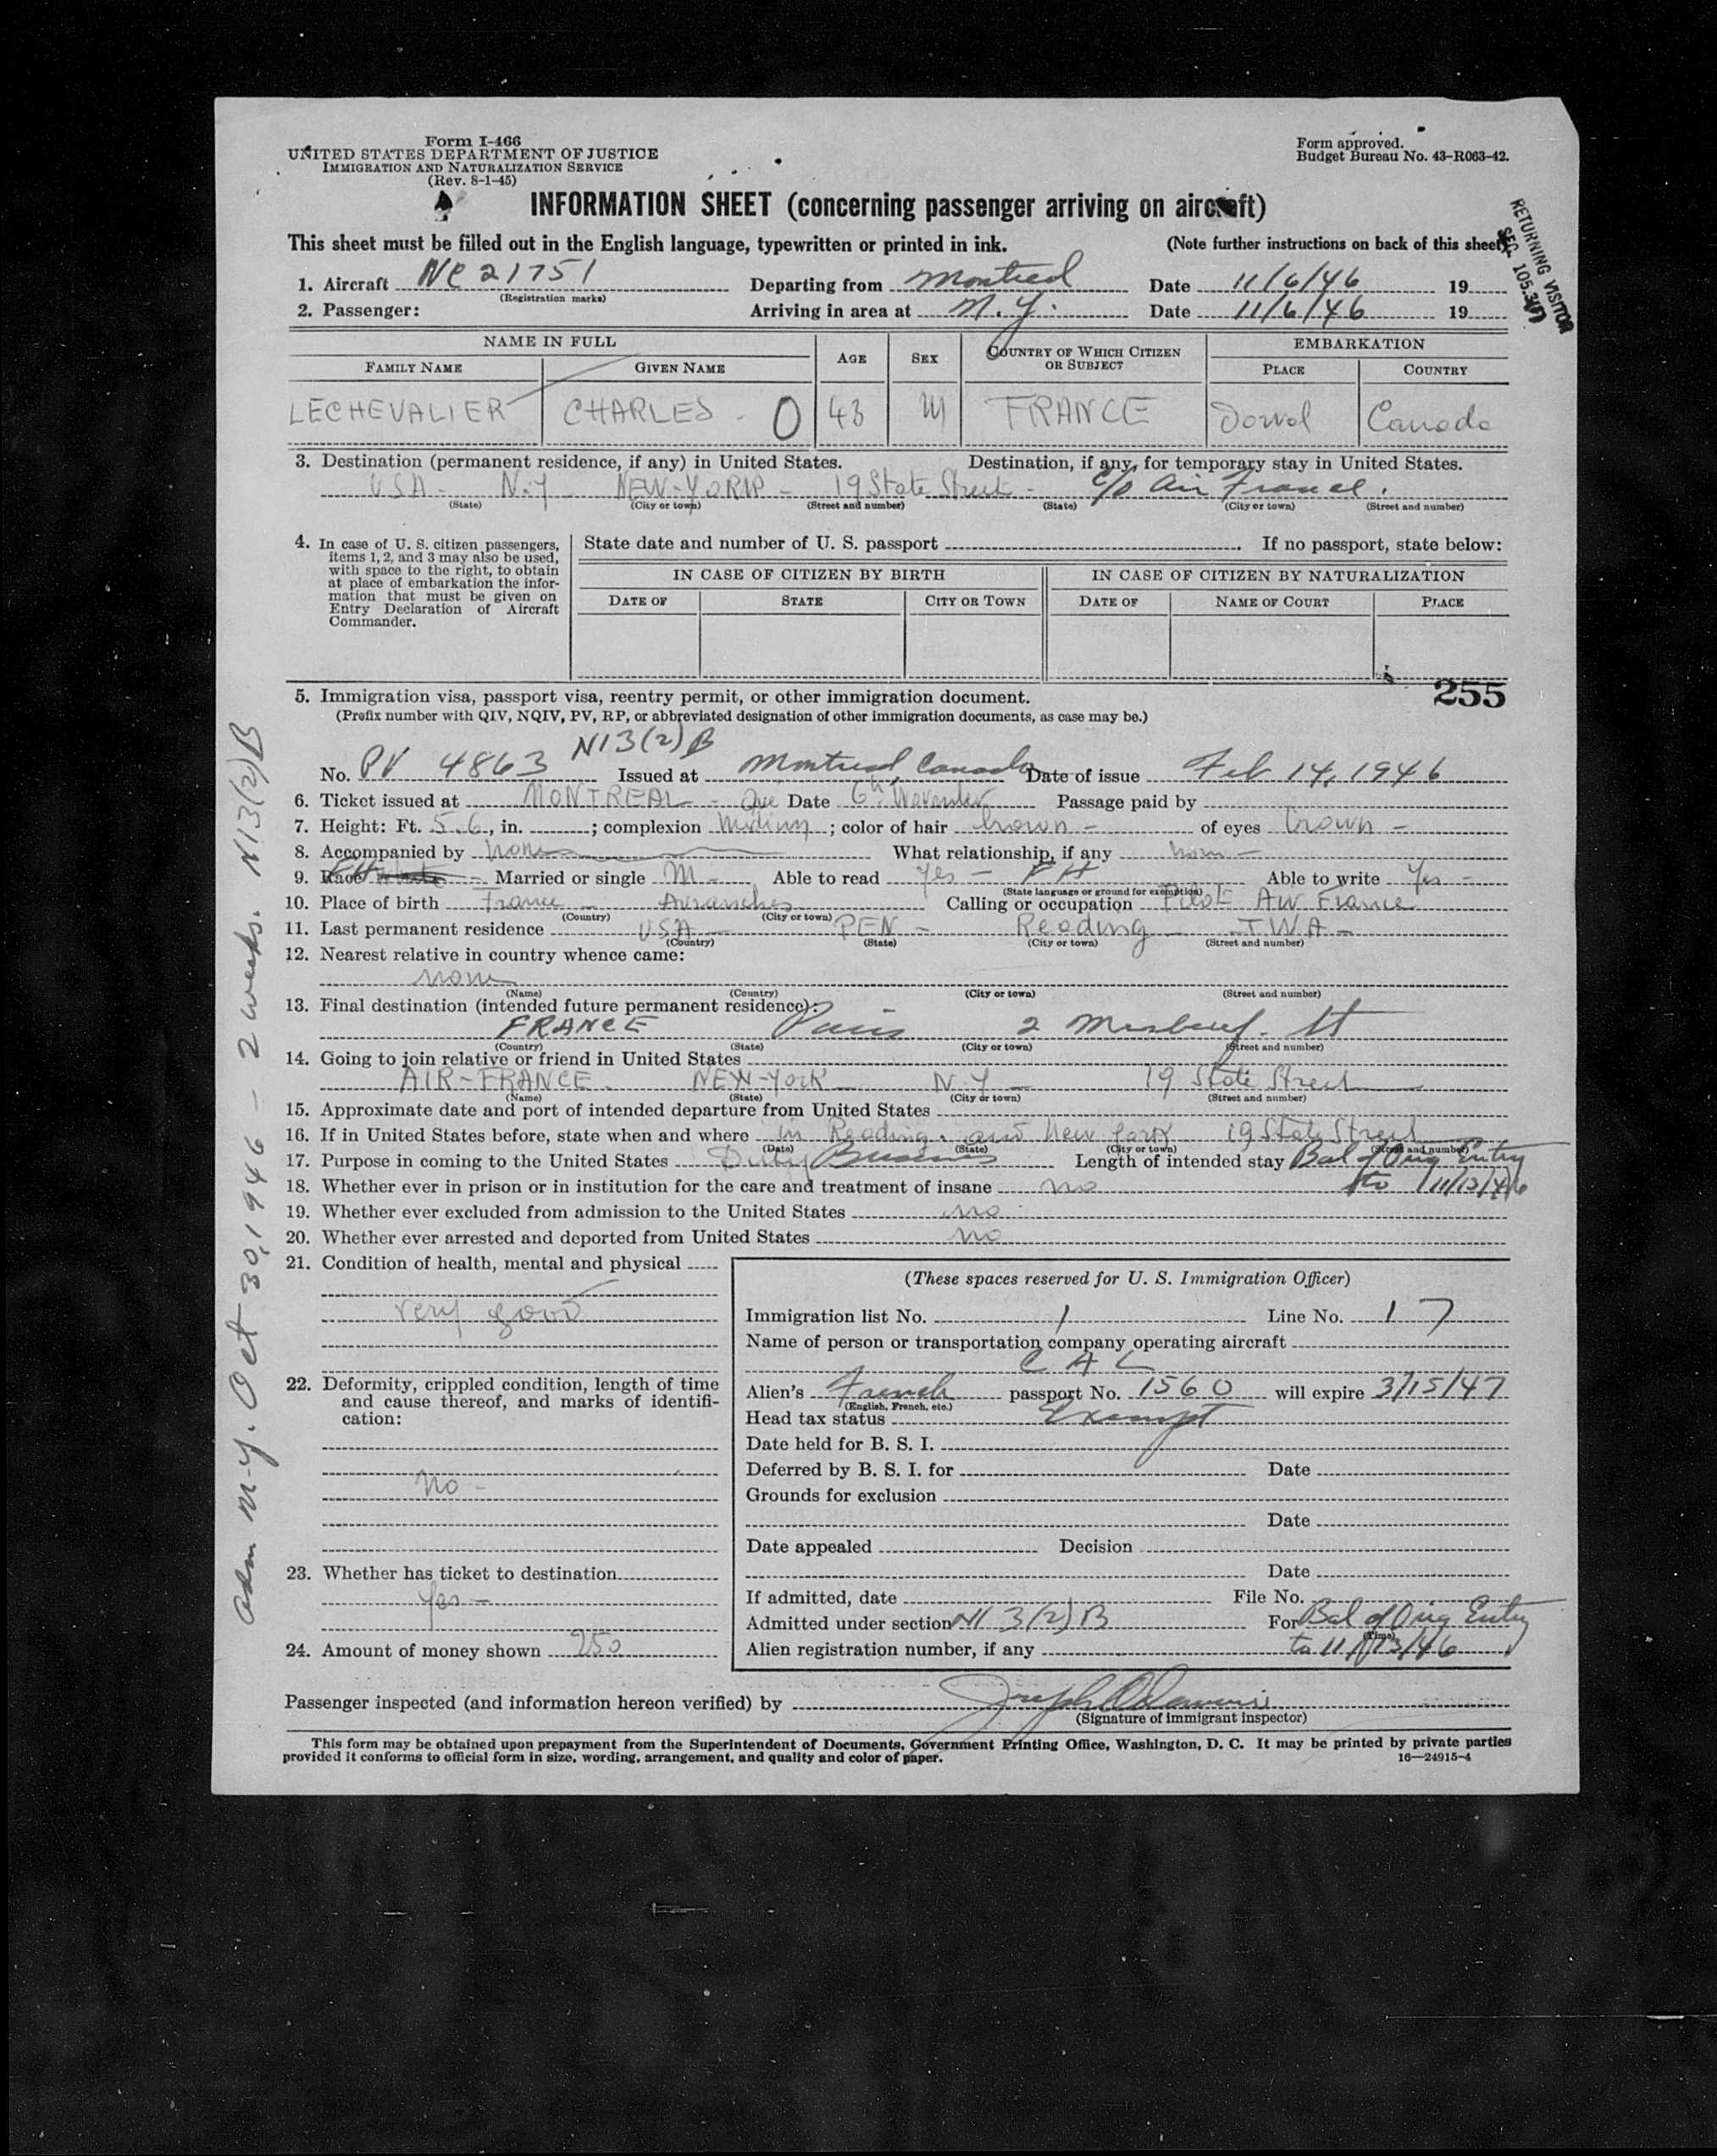 Form I-466
UNITED STATES DEPARTMENT OF JUSTICE
IMMIGRATION AND NATURALIZATION SERVICE
(Rev. 8-1-45)
Form approved.
Budget Bureau No. 43-R063-42.
INFORMATION SHEET (concerning passenger arriving on aircraft)
This sheet must be filled out in the English language, typewritten or printed in ink. (Note further instructions on back of this sheet)
RETURNING VISITOR
SEC. 105.3
1. Aircraft NC 21751 Departing from Montreal Date 11/6/46 19
(Registration marks)
2. Passenger: Arriving in area at N.Y. Date 11/6/46 19
NAME IN FULL AGE SEX COUNTRY OF WHICH CITIZEN OR SUBJECT EMBARKATION
FAMILY NAME GIVEN NAME PLACE COUNTRY
LECHEVALIER CHARLES - O 43 M FRANCE Dorval Canada
3. Destination (permanent residence, if any) in United States. Destination, if any, for temporary stay in United States.
USA - N.Y - NEW-YORK - 19 State Street - c/o Air France.
(State) (City or town) (Street and number) (State) (City or town) (Street and number)
4. In case of U. S. citizen passengers, items 1, 2, and 3 may also be used, with space to the right, to obtain at place of embarkation the information that must be given on Entry Declaration of Aircraft Commander.
State date and number of U. S. passport . If no passport, state below:
IN CASE OF CITIZEN BY BIRTH IN CASE OF CITIZEN BY NATURALIZATION
DATE OF STATE CITY OR TOWN DATE OF NAME OF COURT PLACE
255
5. Immigration visa, passport visa, reentry permit, or other immigration document.
(Prefix number with QIV, NQIV, PV, RP, or abbreviated designation of other immigration documents, as case may be.)
N13(2)B
No. PV 4863 Issued at Montreal, Canada Date of issue Feb 14, 1946
6. Ticket issued at MONTREAL - Que Date 6th November Passage paid by
7. Height: Ft. 5.6, in. ; complexion Medium ; color of hair brown - of eyes brown -
8. Accompanied by none What relationship, if any none -
9. Race Married or single M - Able to read Yes - FH Able to write Yes -
(State language or ground for exemption)
10. Place of birth France - Avranches Calling or occupation Pilot Air France
(Country) (City or town)
11. Last permanent residence USA - PEN - Reading - TWA -
(Country) (State) (City or town) (Street and number)
12. Nearest relative in country whence came:
none
(Name) (Country) (City or town) (Street and number)
13. Final destination (intended future permanent residence):
FRANCE Paris 2 St
(Country) (State) (City or town) (Street and number)
14. Going to join relative or friend in United States
AIR-FRANCE. NEW-YORK N.Y - 19 State Street
(Name) (State) (City or town) (Street and number)
15. Approximate date and port of intended departure from United States
16. If in United States before, state when and where in Reading. and New York 19 State Street
(Date) (State) (City or town) (Street and number)
17. Purpose in coming to the United States Duty Business Length of intended stay Bal of Orig Entry
to 11/13/46
18. Whether ever in prison or in institution for the care and treatment of insane no
19. Whether ever excluded from admission to the United States no
20. Whether ever arrested and deported from United States no
21. Condition of health, mental and physical
very good
22. Deformity, crippled condition, length of time and cause thereof, and marks of identification:
No -
23. Whether has ticket to destination
Yes -
24. Amount of money shown 250
(These spaces reserved for U. S. Immigration Officer)
Immigration list No. 1 Line No. 17
Name of person or transportation company operating aircraft
C A L
Alien's French passport No. 1560 will expire 3/15/47
(English, French, etc.)
Head tax status Exempt
Date held for B. S. I.
Deferred by B. S. I. for Date
Grounds for exclusion
Date
Date appealed Decision
Date
If admitted, date File No.
Admitted under section N 3(2)B For Bal of Orig Entry
(Time)
Alien registration number, if any to 11/13/46
Passenger inspected (and information hereon verified) by Joseph
(Signature of immigrant inspector)
This form may be obtained upon prepayment from the Superintendent of Documents, Government Printing Office, Washington, D. C. It may be printed by private parties
provided it conforms to official form in size, wording, arrangement, and quality and color of paper. 16—24915-4
Adm N-Y. Oct 30, 1946 - 2 weeks. N13(2)B